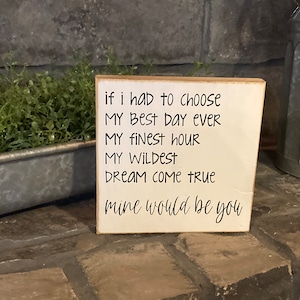 if i had to choose
my best day ever
my finest hour
my wildest
dream come true
mine would be you